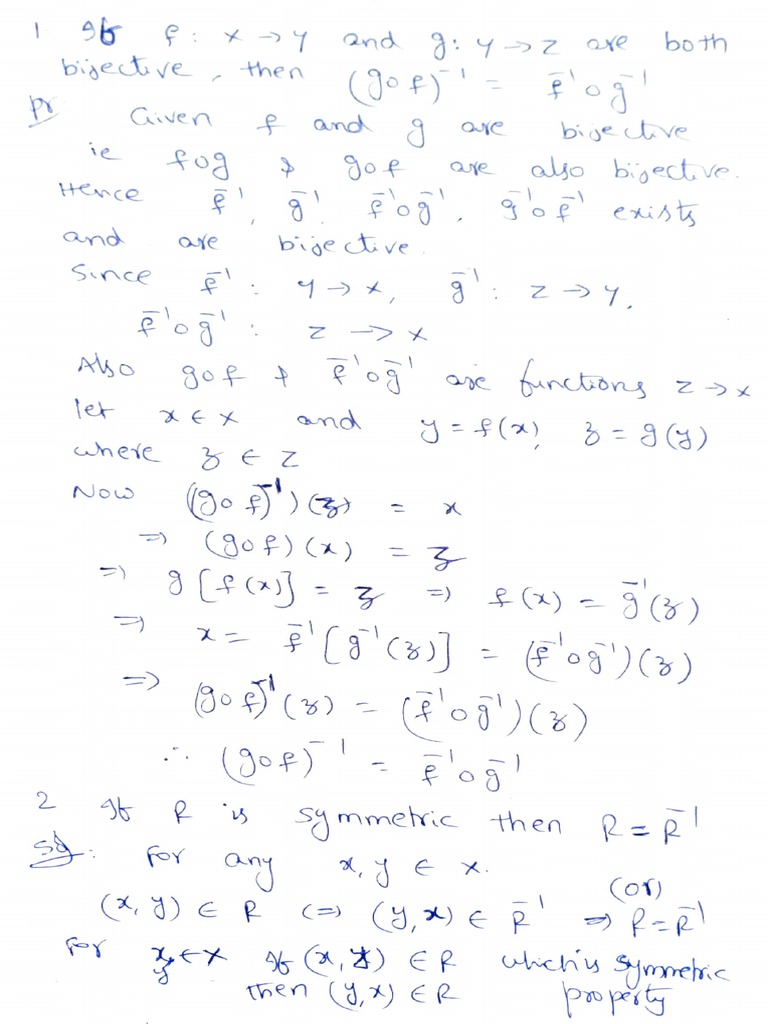 1 If f: x → y and g: y → z are both
bijective, then (gof)⁻¹ = f⁻¹og⁻¹
Pr Given f and g are bijective
ie fog & gof are also bijective.
Hence f⁻¹, g⁻¹, f⁻¹og⁻¹, g⁻¹of⁻¹ exists
and are bijective.
Since f⁻¹: y → x, g⁻¹: z → y,
f⁻¹og⁻¹: z → x
Also gof & f⁻¹og⁻¹ are functions z → x
let x ∈ x and y = f(x), z = g(y)
where z ∈ z
Now (gof)⁻¹)(z) = x
⇒ (gof)(x) = z
⇒ g[f(x)] = z ⇒ f(x) = g⁻¹(z)
⇒ x = f⁻¹[g⁻¹(z)] = (f⁻¹og⁻¹)(z)
⇒ (gof)⁻¹(z) = (f⁻¹og⁻¹)(z)
∴ (gof)⁻¹ = f⁻¹og⁻¹
2 If R is symmetric then R = R⁻¹
Sol: For any x, y ∈ x.
(x, y) ∈ R ⇔ (y, x) ∈ R⁻¹ (or) ⇒ R = R⁻¹
For x, y ∈ x If (x, y) ∈ R which is symmetric
then (y, x) ∈ R property